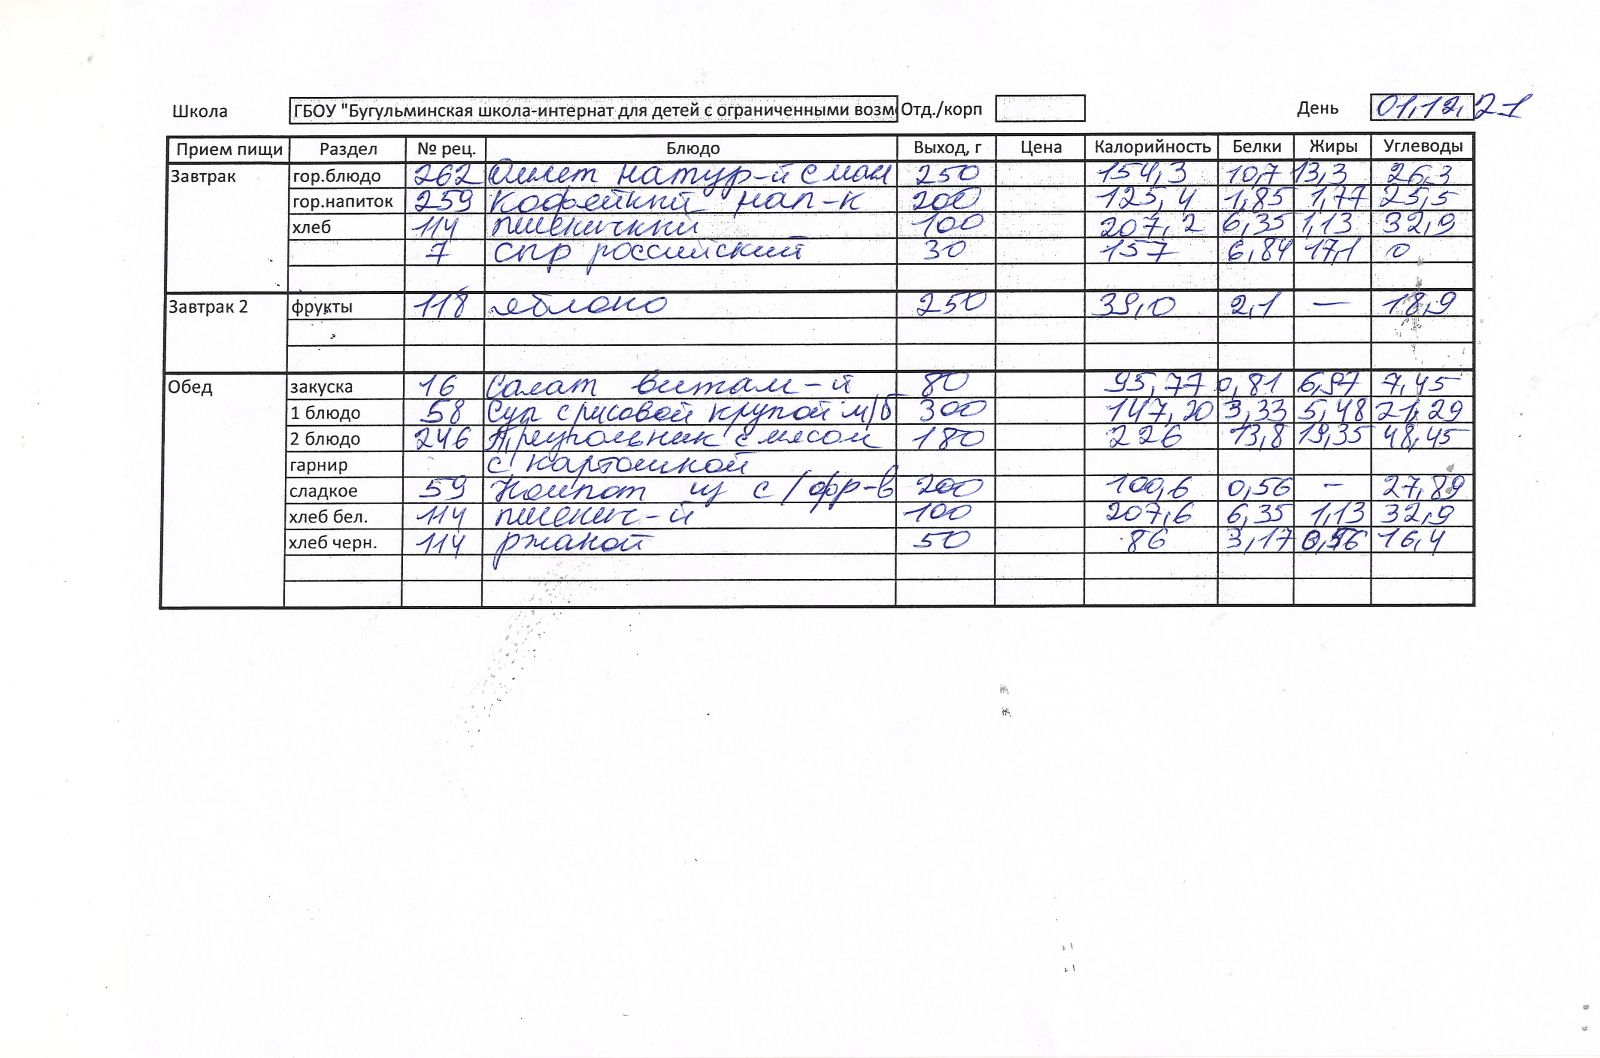 Школа ГБОУ "Бугульминская школа-интернат для детей с ограниченными возм Отд./корп День 01,12,21
Прием пищи Раздел № рец. Блюдо Выход, г Цена Калорийность Белки Жиры Углеводы
Завтрак гор.блюдо 262 Омлет натур-й с мал 250 154,3 10,7 13,3 26,3
гор.напиток 259 Кофейный нап-к 200 125,4 1,85 1,77 25,5
хлеб 114 пшеничный 100 207,2 6,35 1,13 32,9
7 сыр российский 30 157 6,84 17,1 0
Завтрак 2 фрукты 118 яблоко 250 39,0 2,1 — 18,9
Обед закуска 16 Салат витам-й 80 95,77 0,81 6,97 7,45
1 блюдо 58 Суп с рисовой крупой м/б 300 147,20 3,33 5,48 21,29
2 блюдо 246 Треугольник с мясом 180 226 13,8 19,35 48,45
гарнир с картошкой
сладкое 59 Компот из с/фр-в 200 100,6 0,56 - 27,89
хлеб бел. 114 пшенич-й 100 207,6 6,35 1,13 32,9
хлеб черн. 114 ржаной 50 86 3,17 0,56 16,4